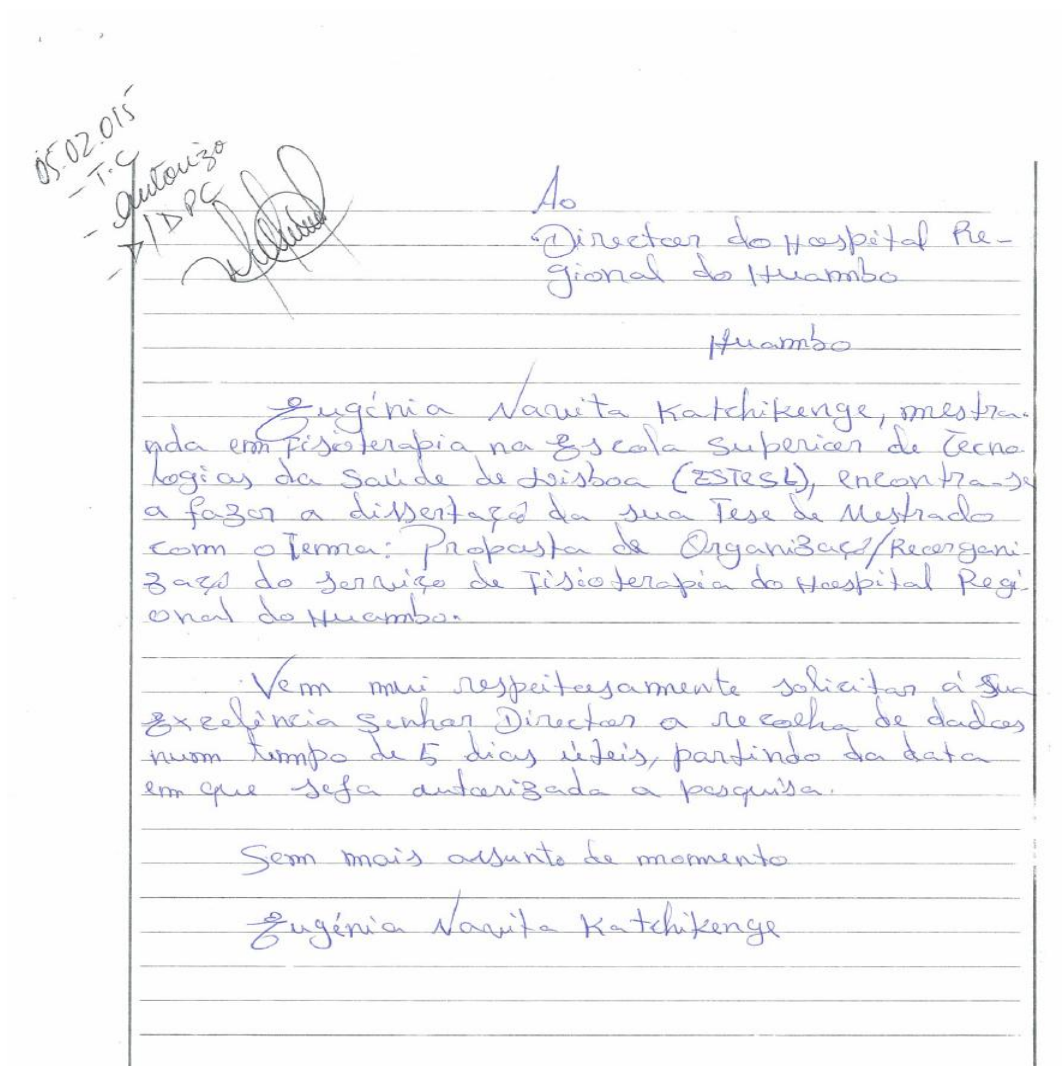 05.02.015
- T.C
- Autorizo
- P/DPC
Ao
Director do Hospital Re-
gional do Huambo
Huambo
Eugénia Navita Katchikenge, mestra-
nda em Fisioterapia na Escola Superior de Tecno-
logias da Saúde de Lisboa (ESTESL), encontra-se
a fazer a dissertaçã da sua Tese de Mestrado
com o Tema: Proposta de Organizaçã/Reorgani-
zaçã do serviço de Fisioterapia do Hospital Regi-
onal do Huambo.
Vem mui respeitosamente solicitar á Sua
Excelência Senhor Director a recolha de dados
num tempo de 5 dias úteis, partindo da data
em que seja autorizada a pesquisa.
Sem mais assunto de momento
Eugénia Navita Katchikenge